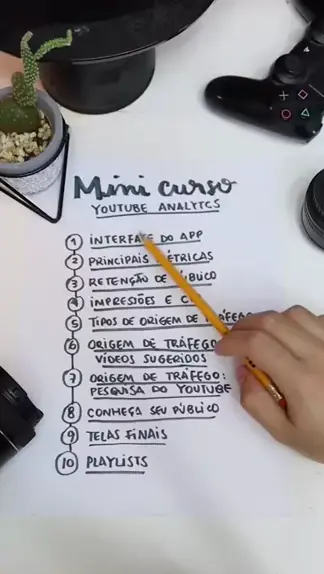 Mini curso
YOUTUBE ANALYTCS
1 INTERFACE DO APP
2 PRINCIPAIS MÉTRICAS
3 RETENÇÃO DE PÚBLICO
4 IMPRESÕES E
5 TIPOS DE ORIGEM DE TRÁFEGO
6 ORIGEM DE TRÁFEGO
VÍDEOS SUGERIDOS
7 ORIGEM DE TRÁFEGO:
PESQUISA DO YOUTUBE
8 CONHEÇA SEU PÚBLICO
9 TELAS FINAIS
10 PLAYLISTS